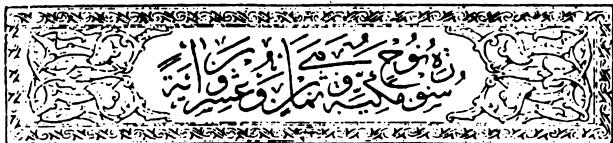 سورة نوح مكية وهي ثمان وعشرون آية